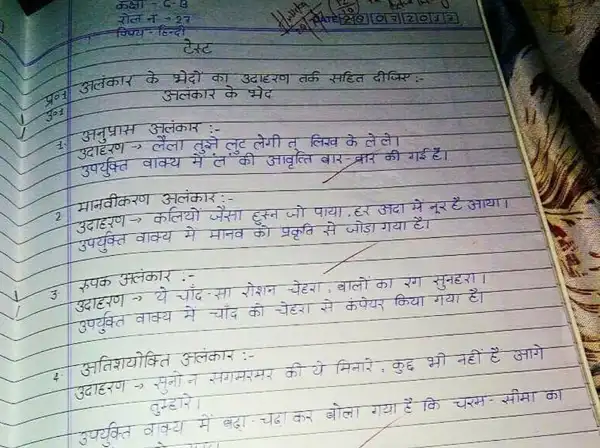 कक्षा - C-B
रोल न - 27
विषय - हिन्दी
DATE
टेस्ट
प्र०1 अलंकार के भेदों का उदाहरण तर्क सहित दीजिए :-
उ०1 अलंकार के भेद
1. अनुप्रास अलंकार :-
उदाहरण → लैला तुझे लुट लेगी तू लिख के लेले।
उपर्युक्त वाक्य में ल की आवृत्ति बार-बार की गई है।
2. मानवीकरण अलंकार :-
उदाहरण → कलियों जैसा हुस्न जो पाया, हर अदा में नूर है आया।
उपर्युक्त वाक्य मे मानव को प्रकृति से जोडा गया है।
3. रुपक अलंकार :-
उदाहरण → ये चाँद-सा रोशन चेहरा, बालों का रंग सुनहरा।
उपर्युक्त वाक्य में चाँद की चेहरा से कंपेयर किया गया है।
4. अतिशयोक्ति अलंकार :-
उदाहरण → सुनो न संगमरमर की ये मिनारे, कुछ भी नहीं है आगे
तुम्हारे।
उपर्युक्त वाक्य में बढ़ा-चढ़ा कर बोला गया है कि चरम-सीमा का